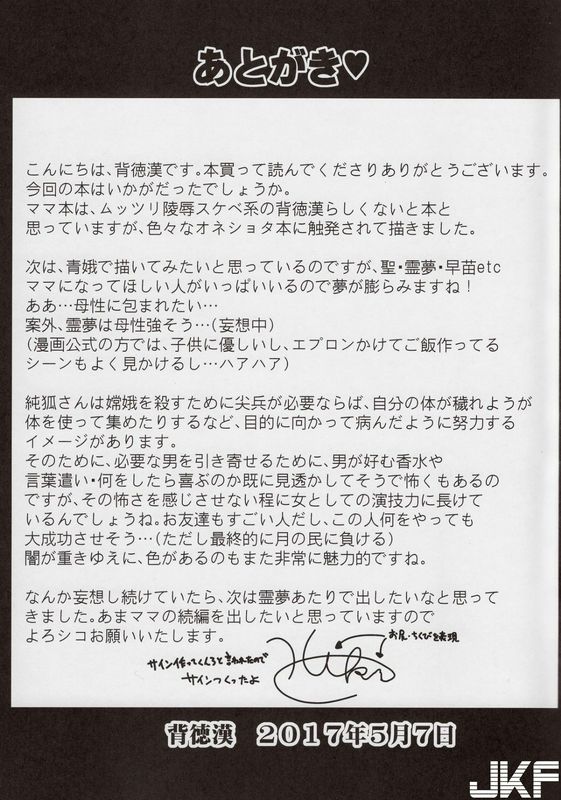 あとがき♡
こんにちは、背徳漢です。本買って読んでくださりありがとうございます。
今回の本はいかがだったでしょうか。
ママ本は、ムッツリ陵辱スケベ系の背徳漢らしくないと本と
思っていますが、色々なオネショタ本に触発されて描きました。
次は、青娥で描いてみたいと思っているのですが、聖・霊夢・早苗etc
ママになってほしい人がいっぱいいるので夢が膨らみますね！
ああ…母性に包まれたい…
案外、霊夢は母性強そう…(妄想中)
(漫画公式の方では、子供に優しいし、エプロンかけてご飯作ってる
シーンもよく見かけるし…ハアハア)
純狐さんは嫦娥を殺すために尖兵が必要ならば、自分の体が穢れようが
体を使って集めたりするなど、目的に向かって病んだように努力する
イメージがあります。
そのために、必要な男を引き寄せるために、男が好む香水や
言葉遣い・何をしたら喜ぶのか既に見透かしてそうで怖くもあるの
ですが、その怖さを感じさせない程に女としての演技力に長けて
いるんでしょうね。お友達もすごい人だし、この人何をやっても
大成功させそう…(ただし最終的に月の民に負ける)
闇が重きゆえに、色があるのもまた非常に魅力的ですね。
なんか妄想し続けていたら、次は霊夢あたりで出したいなと思って
きました。あまママの続編を出したいと思っていますので
よろシコお願いいたします。
お尻・ちくびを表現
サイン作ってくんろと言われたので
サインつくったよ
背徳漢 2017年5月7日
JKF